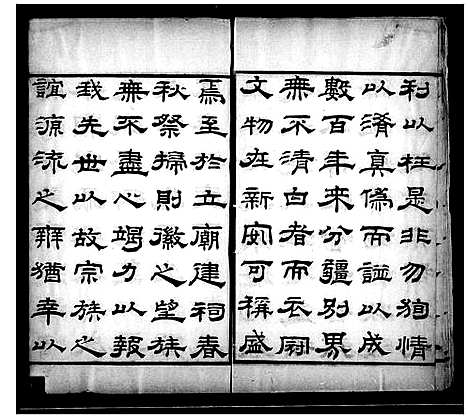 利以枉是非勿狥情
以淆真偽而諡以成
數百年來分疆別界
無不清白者而衣冠
文物在新安可稱盛
焉至於立廟建祠春
秋祭掃則徽之望族
無不盡心竭力以報
我先世以故宗族之
誼源流之辨猶幸以